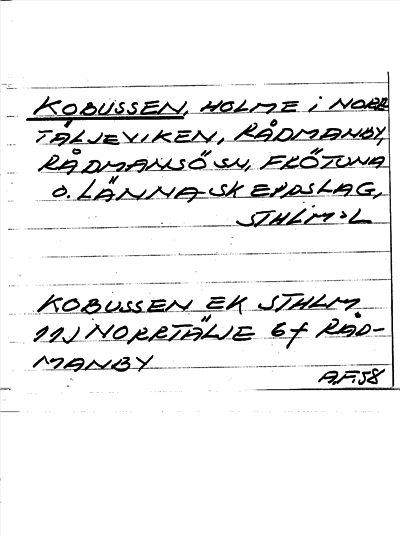 KOBUSSEN, HOLME i NORR
TÄLJEVIKEN, RÅDMANBY,
RÅDMANSÖ SN, FRÖTUNA
O. LÄNNA SKEPPSLAG,
STHLMSL
KOBUSSEN EK STHLM
11J NORRTÄLJE 6f RÅD-
MANBY
A.F.58